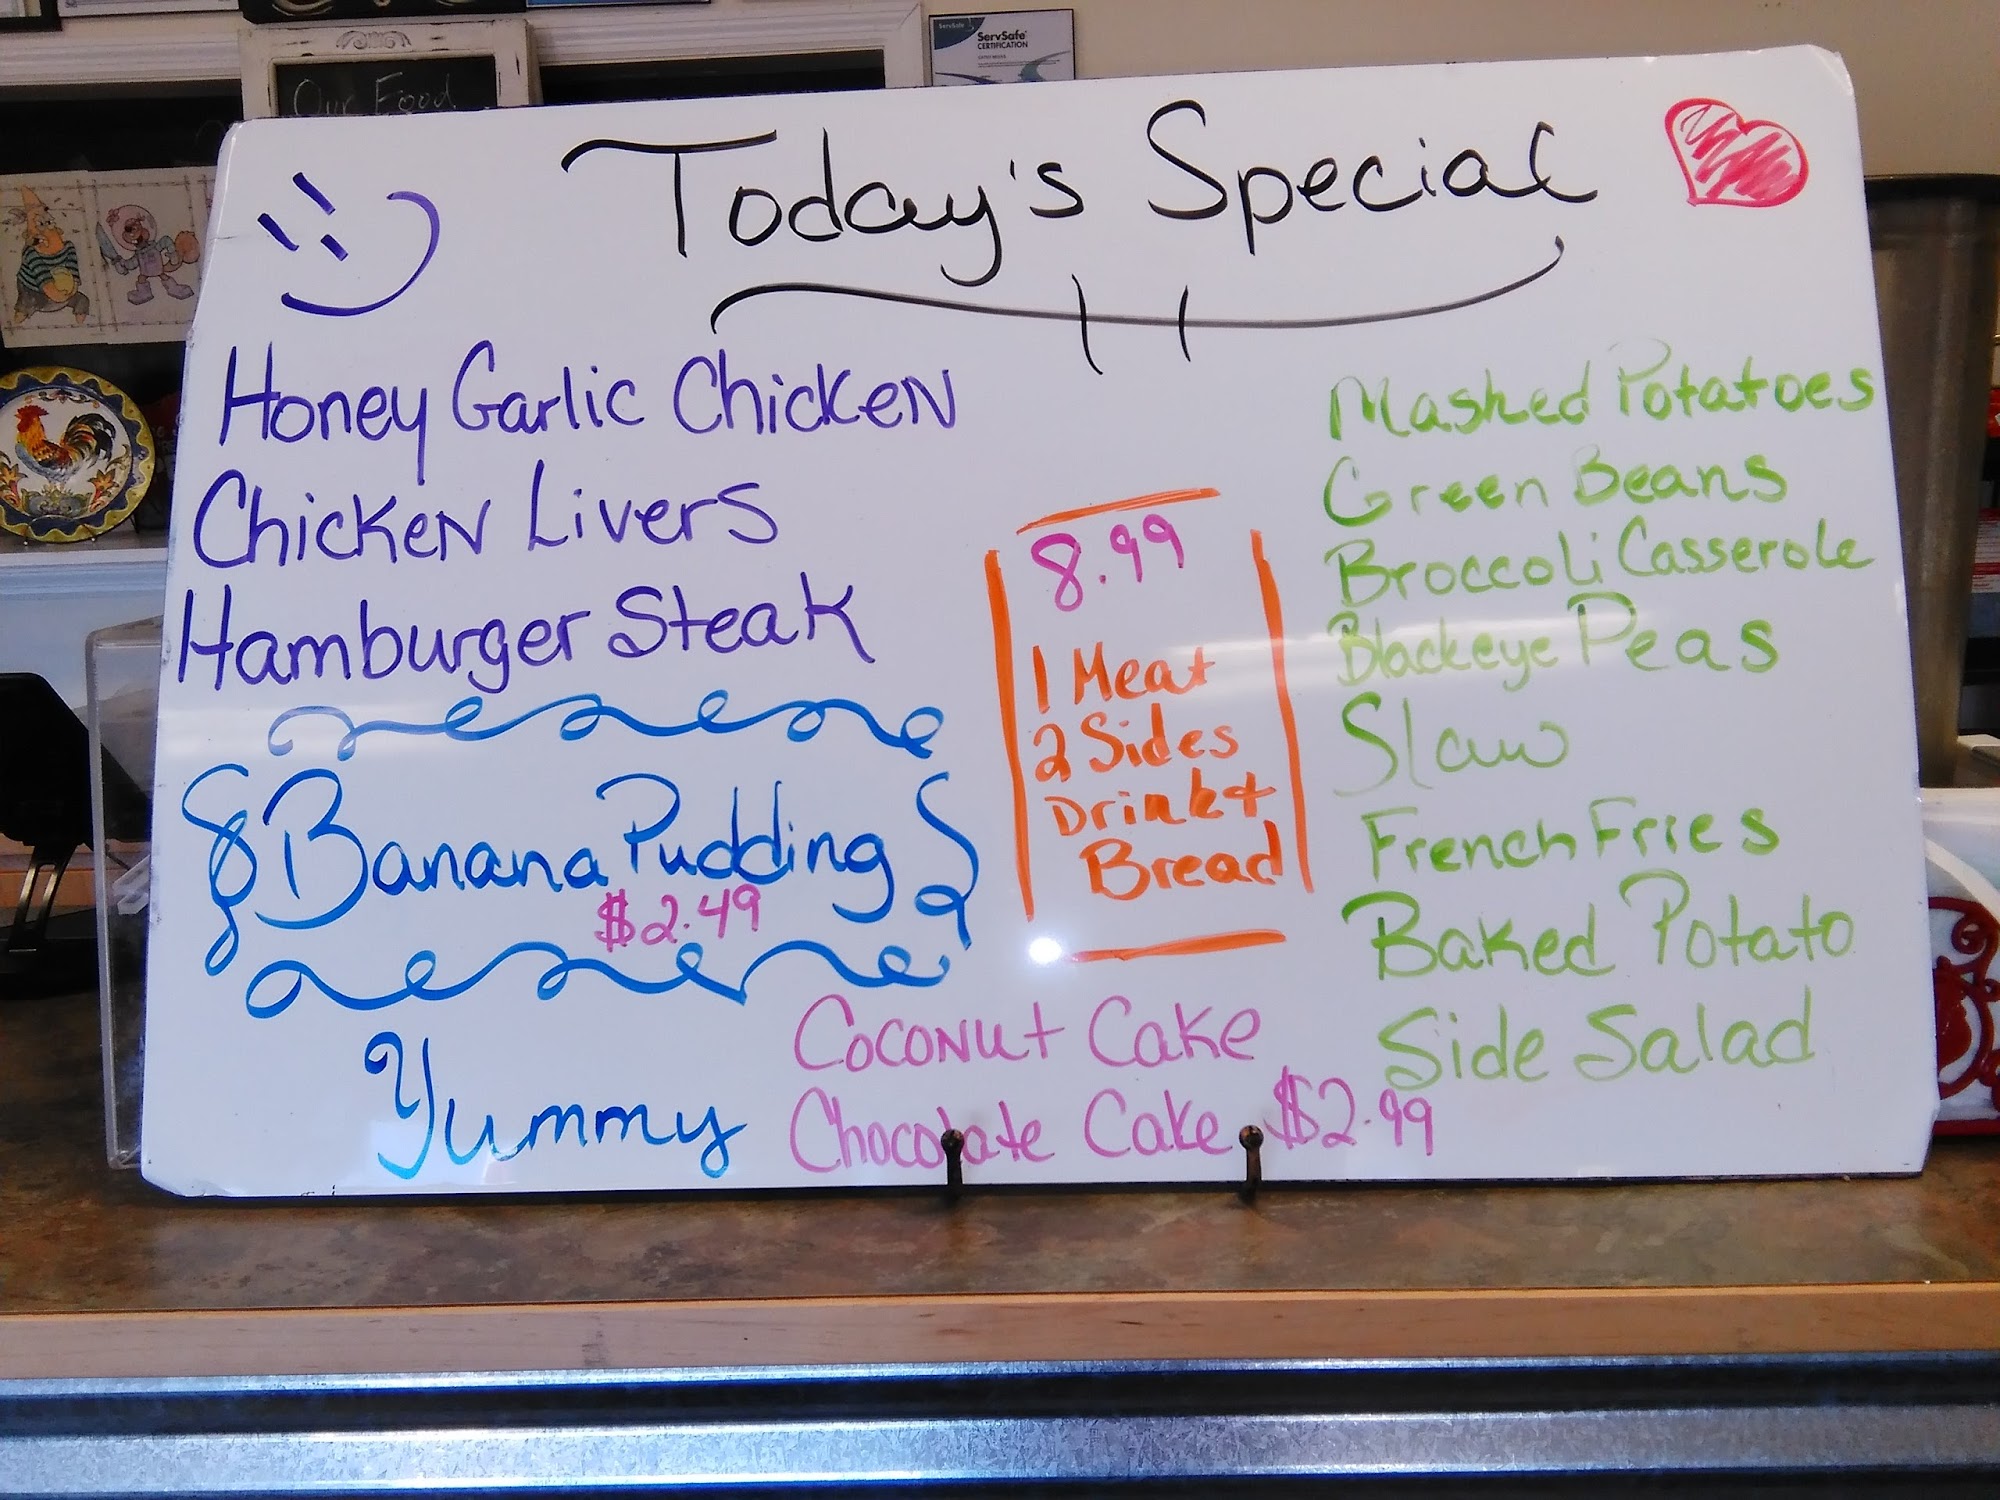 ServSafe
ServSafe
CERTIFICATION
Our Food
Today's Special
Honey Garlic Chicken
Chicken Livers
Hamburger Steak
Banana Pudding
$2.49
Yummy
8.99
1 Meat
2 Sides
Drink &
Bread
Coconut Cake
Chocolate Cake $2.99
Mashed Potatoes
Green Beans
Broccoli Casserole
Blackeye Peas
Slaw
French Fries
Baked Potato
Side Salad